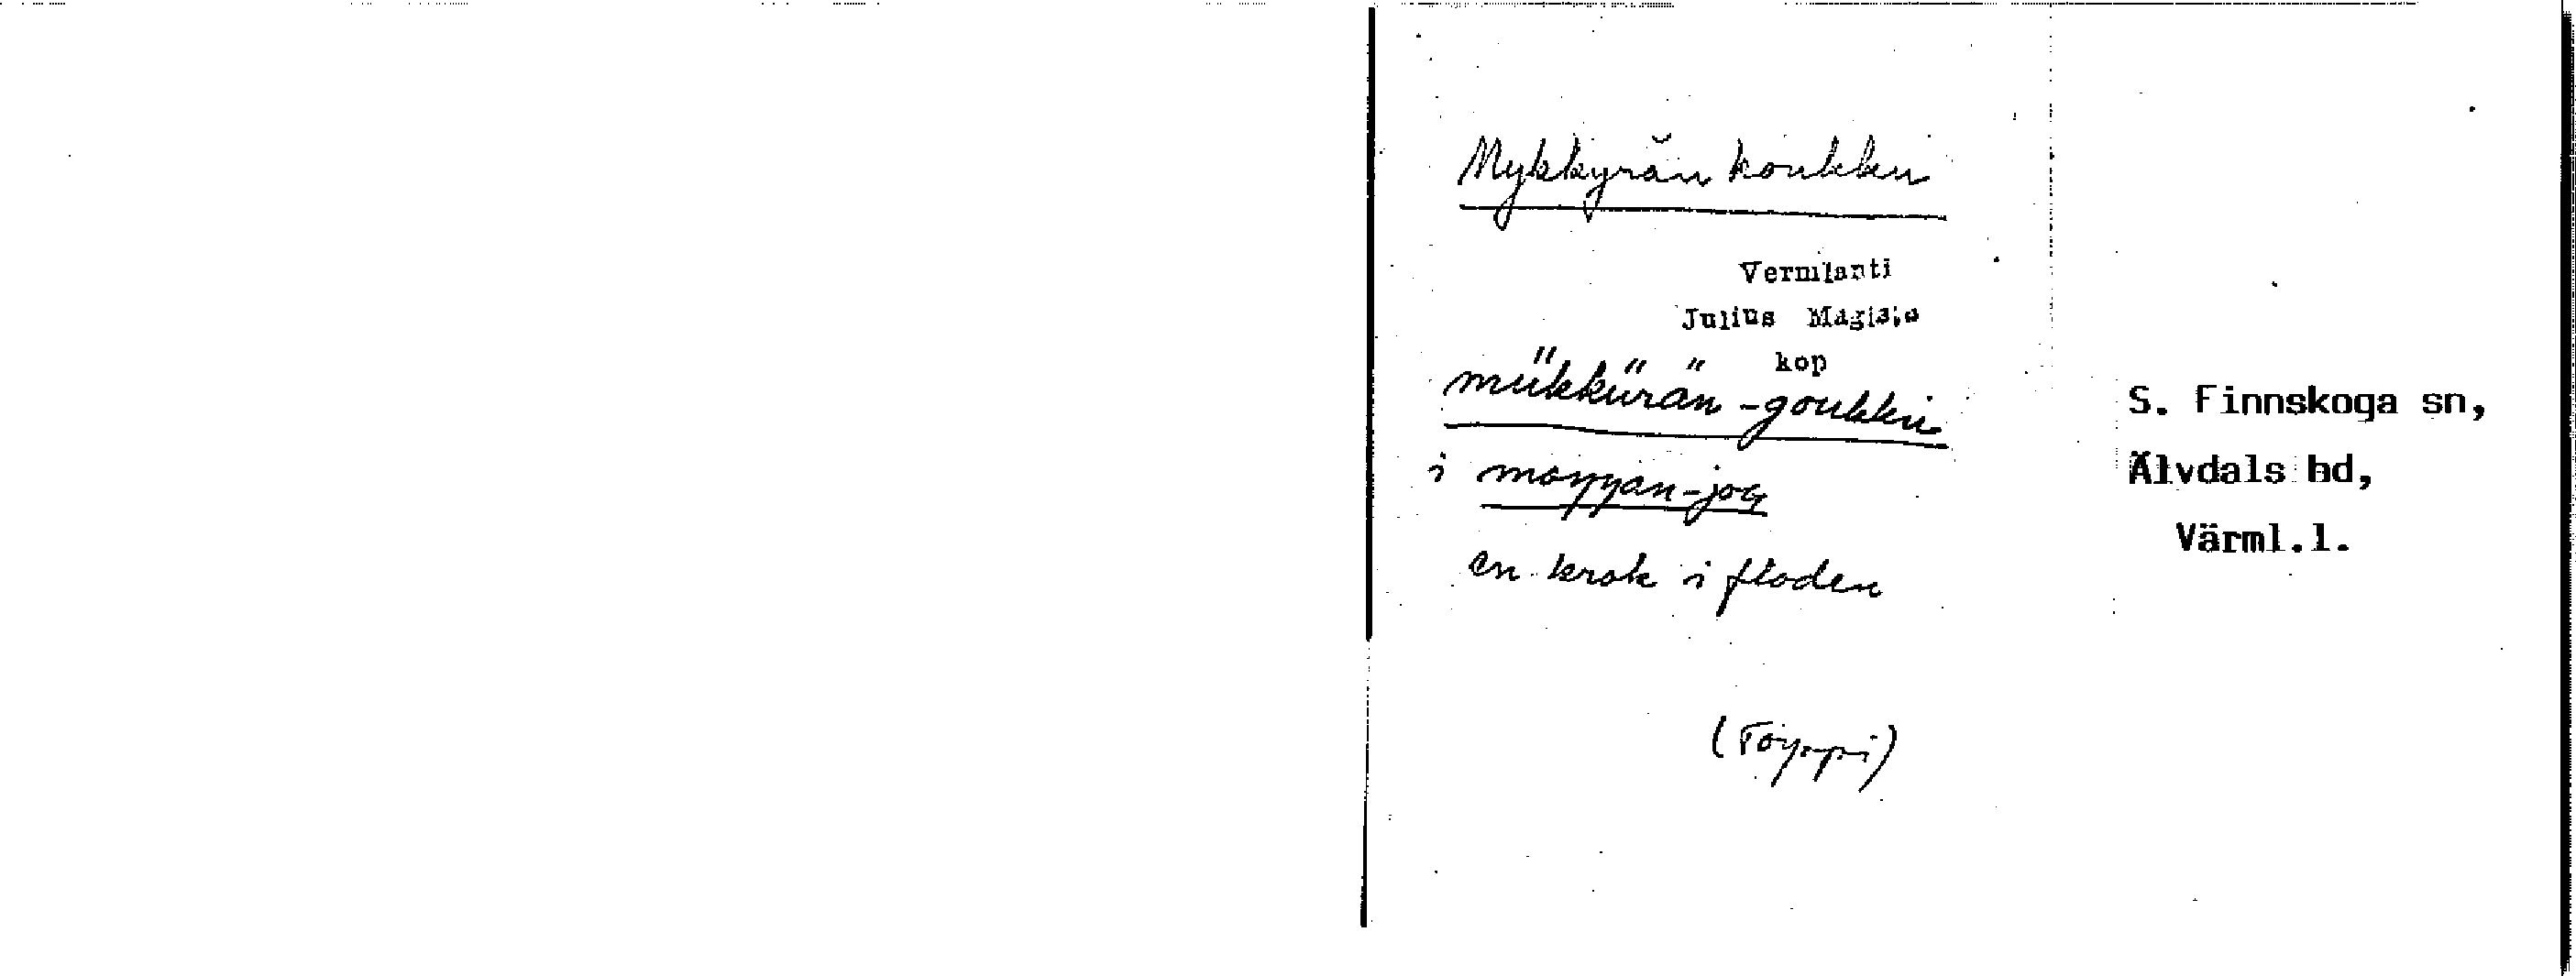 Mykkyrän koukku
Vermlanti
Julius Mägiste
kop
mükkürän-goukku
i moŋŋan-joɢ
en krok i floden
(Töyppi)
S. Finnskoga sn,
Älvdals hd,
Värml.l.